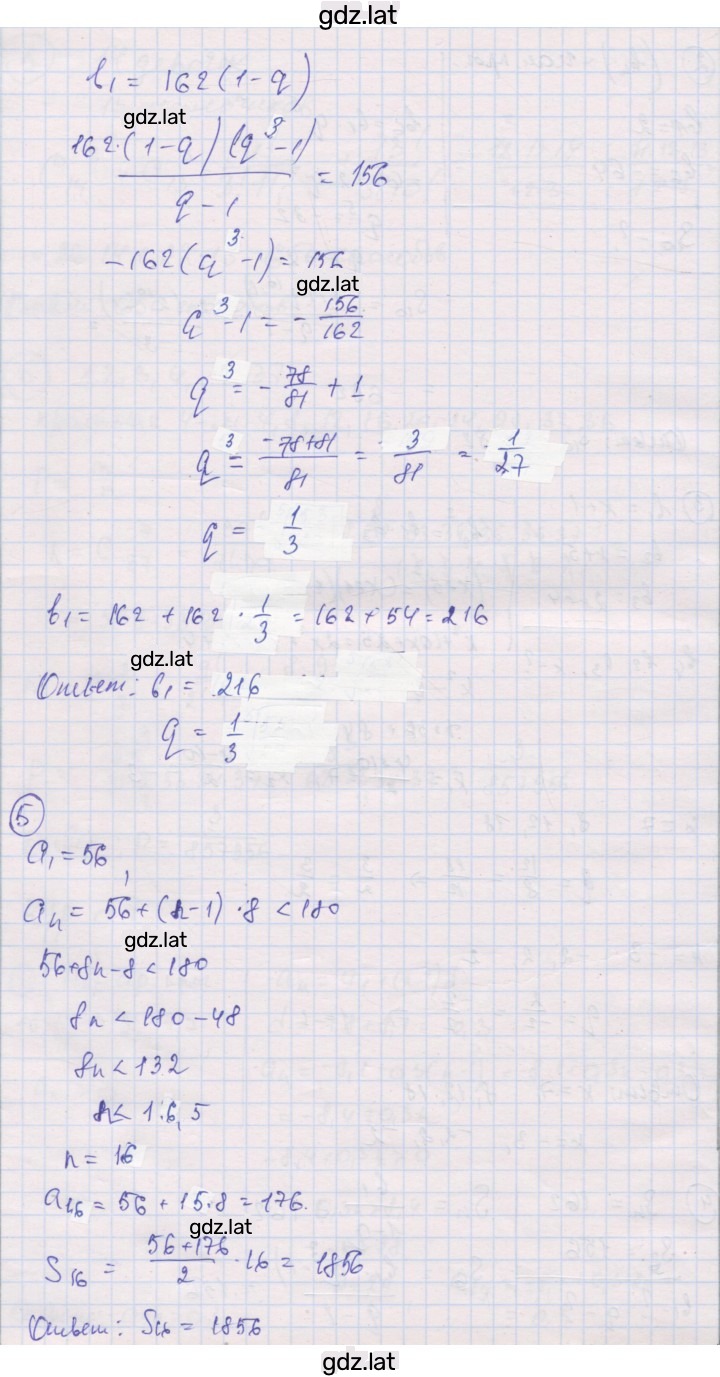 gdz.lat
b₁ = 162(1-q)
gdz.lat
162·(1-q)(q³-1)/(q-1) = 156
-162(q³-1) = 156
gdz.lat
q³-1 = -156/162
q³ = -78/81 + 1
q³ = (-78+81)/81 = 3/81 = 1/27
q = 1/3
b₁ = 162 + 162 · 1/3 = 162 + 54 = 216
gdz.lat
Ответ: b₁ = 216
q = 1/3
5
a₁ = 56
aₙ = 56 + (n-1) · 8 < 180
gdz.lat
56+8n-8 < 180
8n < 180-48
8n < 132
n < 16,5
n = 16
a₁₆ = 56 + 15·8 = 176.
gdz.lat
S₁₆ = (56+176)/2 · 16 = 1856
Ответ: S₁₆ = 1856
gdz.lat